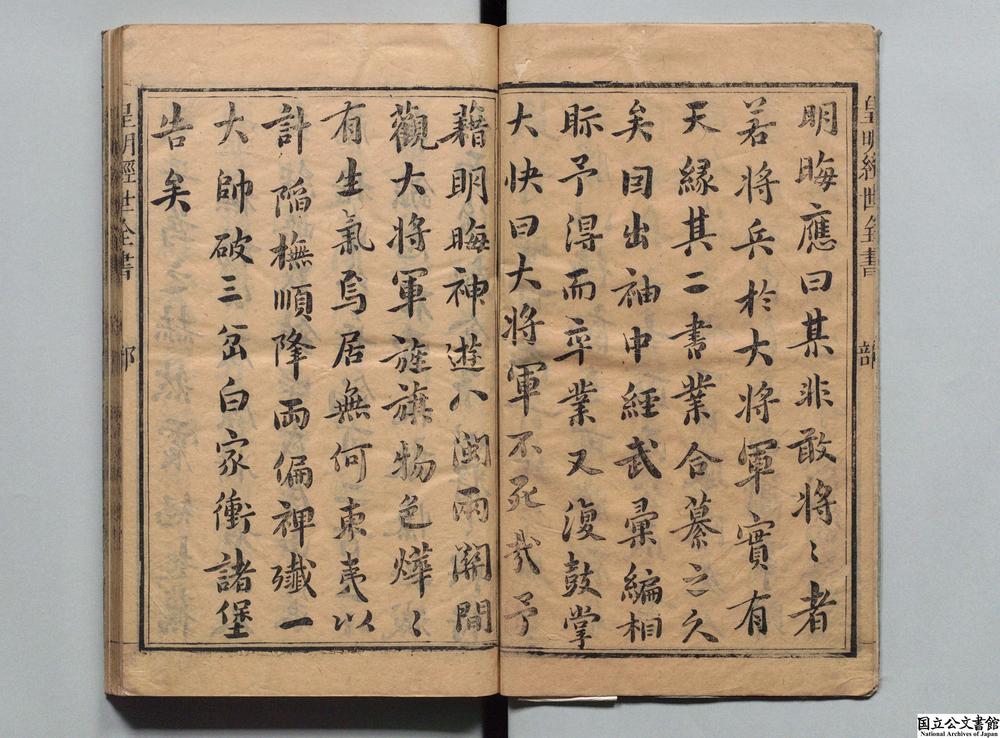 明晦應曰某非敢將〻者
若將兵於大將軍實有
天縁其二書業合纂之久
矣因出袖中經武彙編相
眎予得而卒業又復鼓掌
大快曰大將軍不死哉予
藉明晦神遊八閩兩關間
觀大將軍旌旗物色燁〻
有生氣焉居無何東夷以
計陷撫順降兩偏裨殲一
大帥破三岔白家衝諸堡
告矣
皇明經世全書
皇明經世全書
国立公文書館
National Archives of Japan